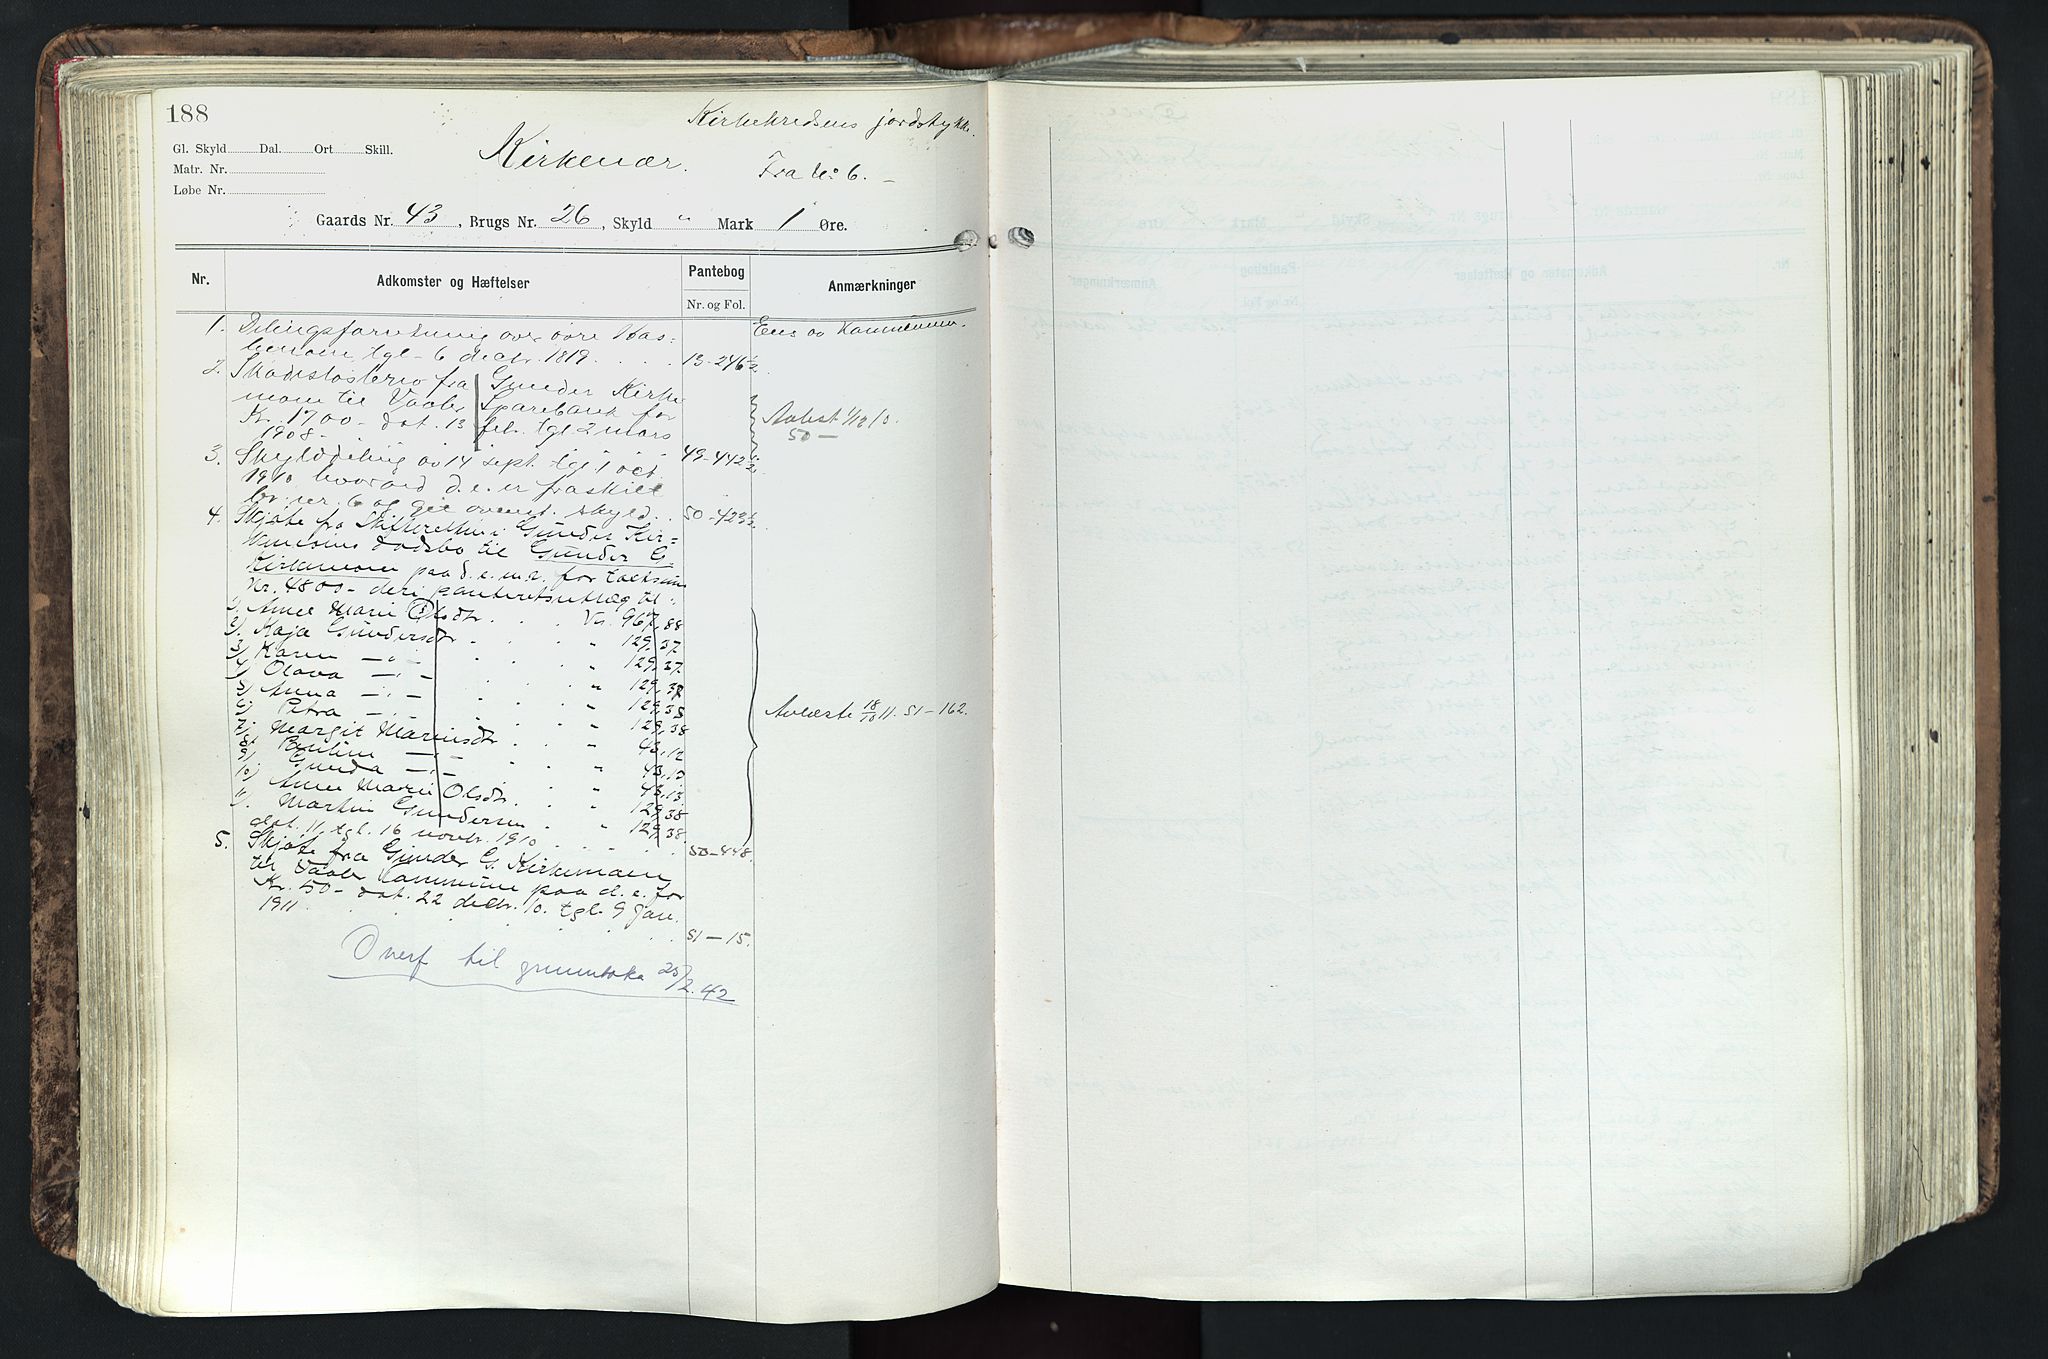 188
Kirkekredsens jordstykke.
Gl. Skyld Dal. Ort Skill.
Matr. Nr.
Løbe Nr.
Kirkenær.
Fra No 6. –
Gaards Nr. 43, Brugs Nr. 26, Skyld " Mark 1 Øre.
Nr. Adkomster og Hæftelser Pantebog Anmærkninger
Nr. og Fol.
1. Delingsforretning over øvre Kas-
tgl. 6 decbr. 1819. . . . 13–246½
Eies av Kommunen.
2. Skadesløsbrev fra Gunder Kirke
moen til Vaaler Sparebank for
Kr. 1700 – dat. 13 feb. tgl. 2 mars
1908 – 49–442½
Avlæst 1/12 10.
50 –
3. Skylddeling av 14 sept. tgl. 1 oct.
1910, hvorved d. e. er fraskilt
br. nr. 6 og git ovenst. skyld. . 50–423½
4. Skjøte fra Skifteretten i Gunder Kir-
kemoens dødsbo til Gunder G.
Kirkemoen paa d. e. m. v. for
Kr. 4800 – den panteretsutlæg til:
1) Anne Marie Olsdtr. . . . Kr. 967,88
2) Kaja Gundersdtr. . . . " 129,37
3) Karen –"– . . . " 129,37
4) Olava –"– . . . " 129,37
5) Anna –"– . . . " 129,38
6) Petra –"– . . . " 129,38
7) Margit Mariusdtr. . . " 43,12
8) –"– . . . " 43,12
9) Gunda –"– . . . " 43,13
10) Anne Marie Olsdtr. . . " 129,38
11) Martin Gundersen . . " 129,38
dat. 11, tgl. 16 novbr. 1910 . . . . 50–448.
Avlæste 18/10 11. 51–162.
5. Skjøte fra Gunder G. Kirkemoen
til Vaaler Kommune paa d. e. for
Kr. 50 – dat. 22 decbr. 10. tgl. 9 jan.
1911 . . . . . . . 51–15.
Overf til grunnboka 25/2. 42